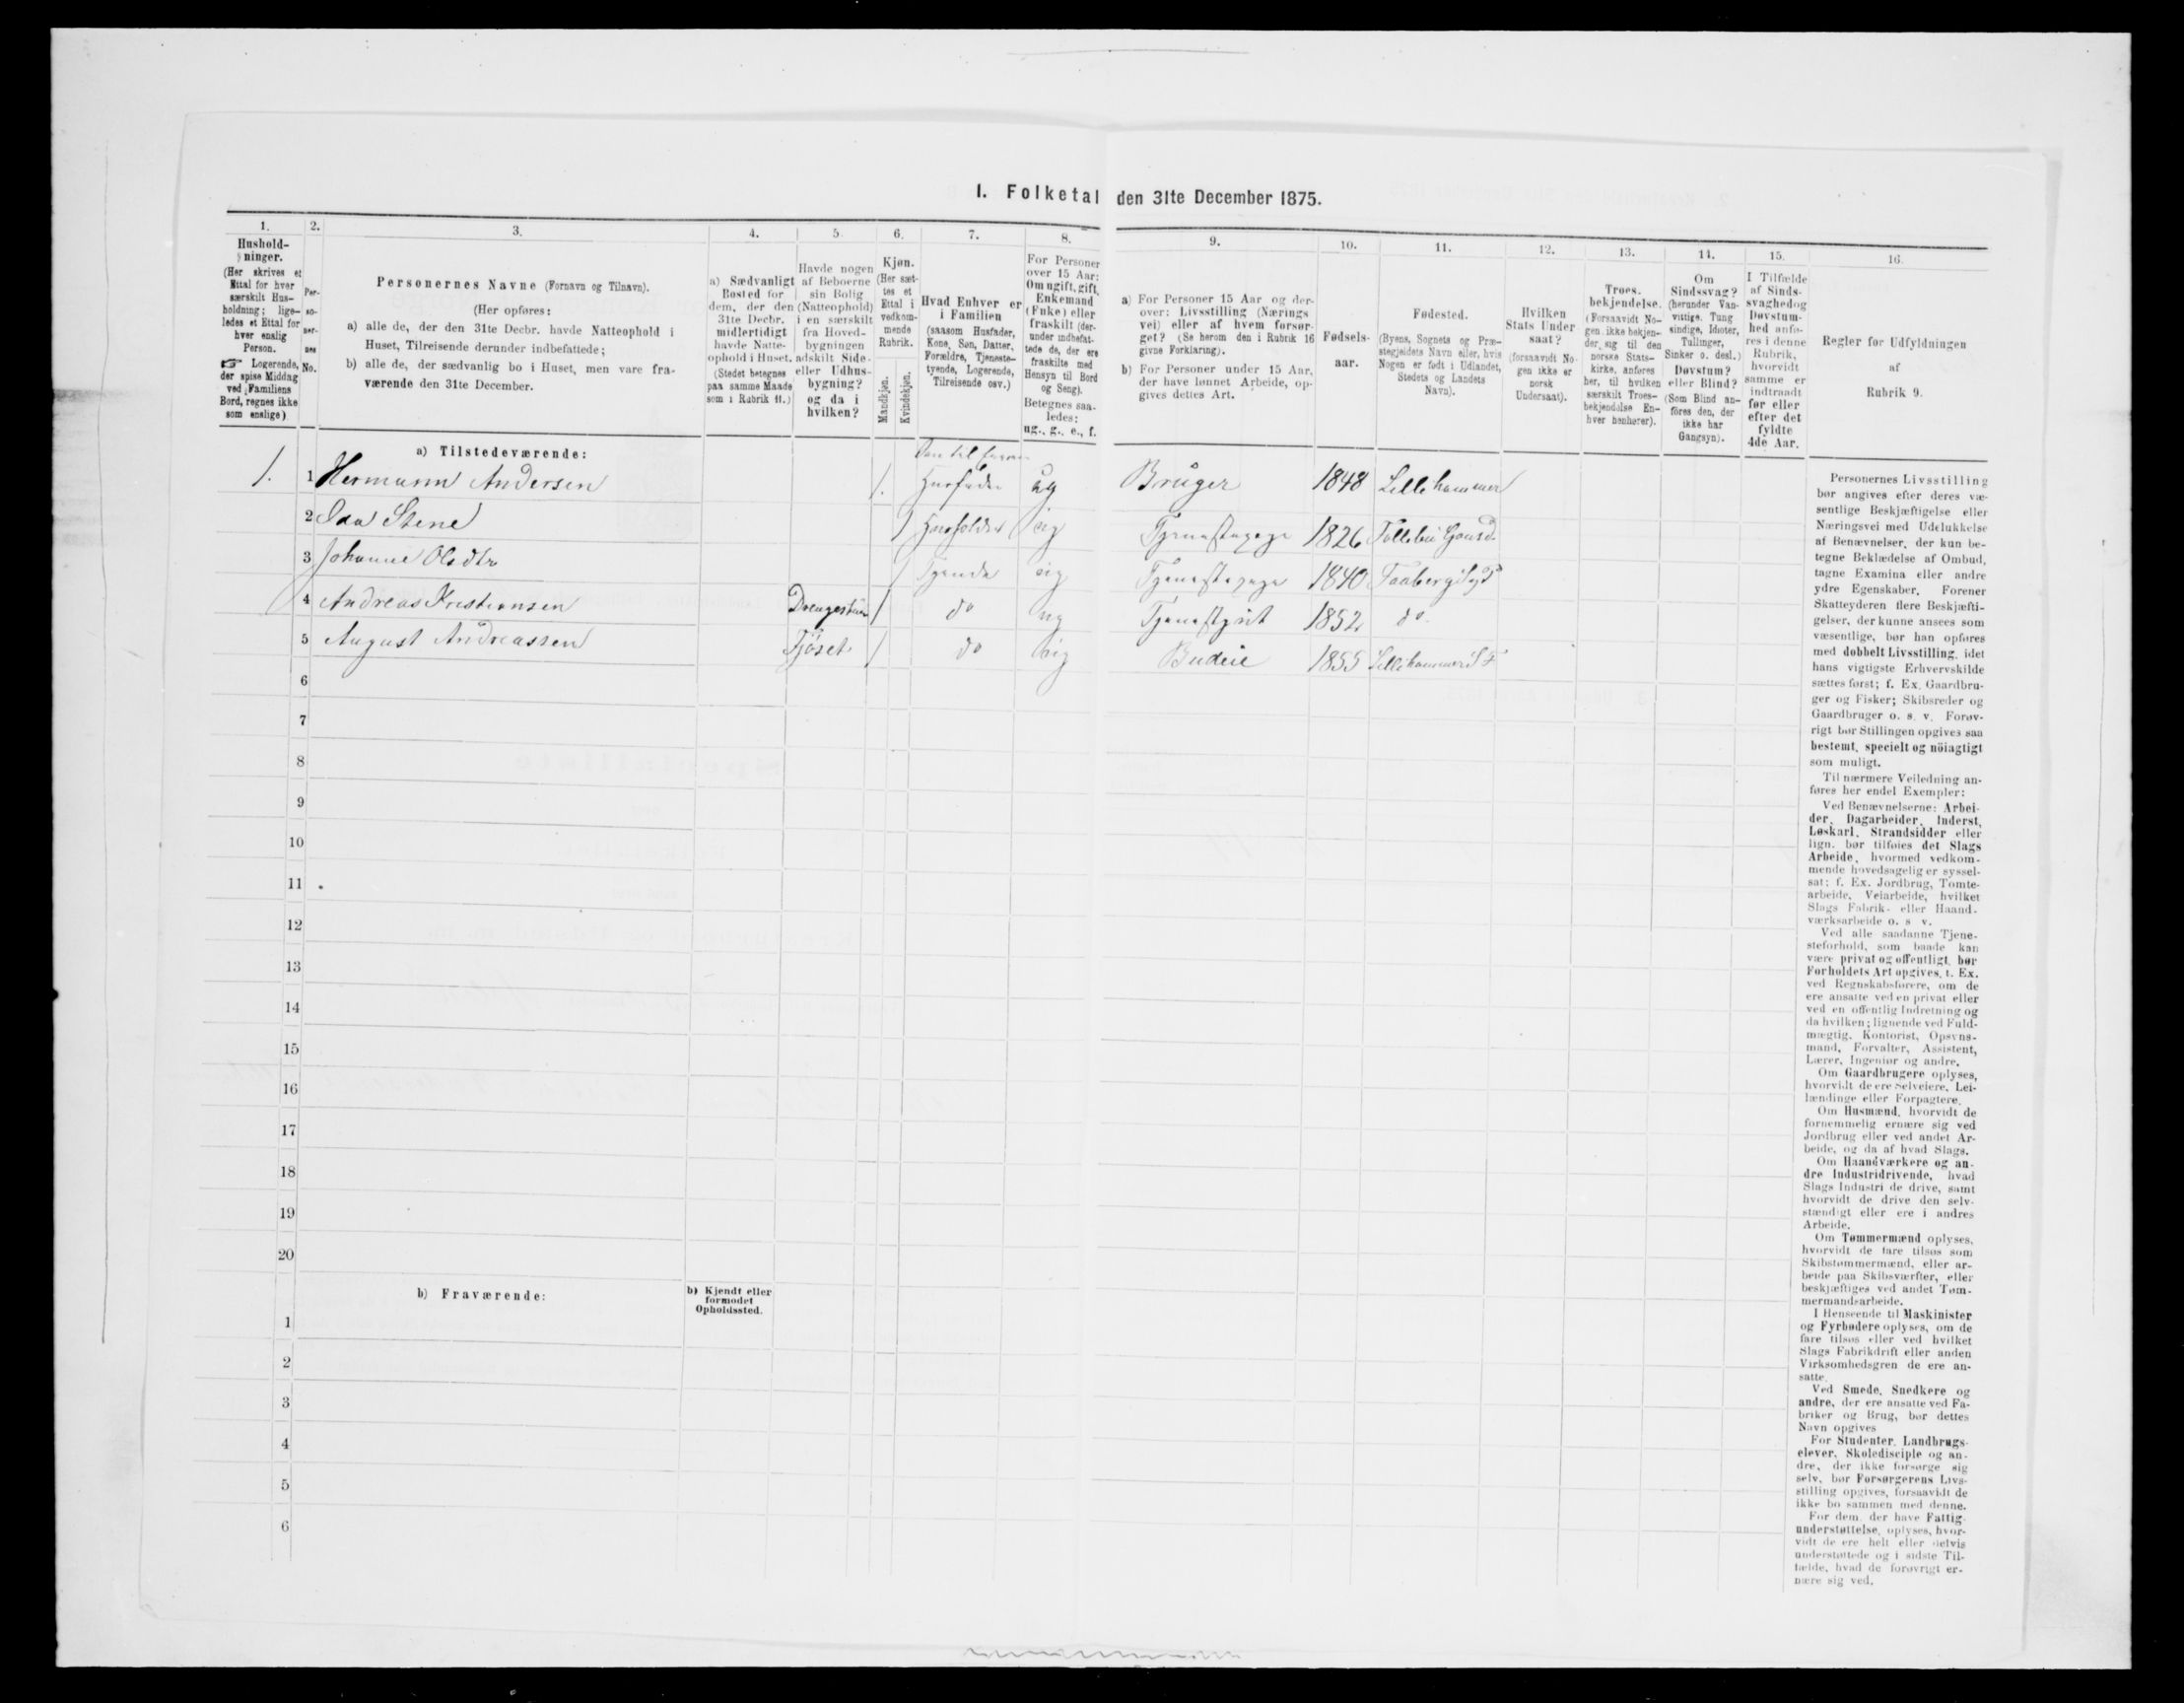 I. Folketal den 31te December 1875.
1.
Hushold-
ninger.
(Her skrives et
Ettal for hver
særskilt Hus-
holdning; lige-
ledes et Ettal for
hver enslig
Person.
☞ Logerende,
der spise Middag
ved Familiens
Bord, regnes ikke
som enslige)
2.
Per-
so-
ner-
nes
No.
3.
Personernes Navne (Fornavn og Tilnavn).
(Her opføres:
a) alle de, der den 31te Decbr. havde Natteophold i
Huset, Tilreisende derunder indbefattede;
b) alle de, der sædvanlig bo i Huset, men vare fra-
værende den 31te December.
4.
a) Sædvanligt
Bosted for
dem, der den
31te Decbr.
midlertidigt
havde Natte-
ophold i Huset.
(Stedet betegnes
paa samme Maade
som i Rubrik 11.)
5.
Havde nogen
af Beboerne
sin Bolig
(Natteophold)
i en særskilt
fra Hoved-
bygningen
adskilt Side-
eller Udhus-
bygning?
og da i
hvilken?
6.
Kjøn.
(Her sæt-
tes et
Ettal i
vedkom-
mende
Rubrik.
Mandkjøn.
Kvindekjøn.
7.
Hvad Enhver er
i Familien
(saasom Husfader,
Kone, Søn, Datter,
Forældre, Tjeneste-
tyende, Logerende,
Tilreisende osv.)
8.
For Personer
over 15 Aar:
Om ugift, gift,
Enkemand
(Enke) eller
fraskilt (der-
under indbefat-
tede de, der ere
fraskilte med
Hensyn til Bord
og Seng).
Betegnes saa-
ledes:
ug., g., e., f.
9.
a) For Personer 15 Aar og der-
over: Livsstilling (Nærings
vei) eller af hvem forsør-
get? (Se herom den i Rubrik 16
givne Forklaring).
b) For Personer under 15 Aar,
der have lønnet Arbeide, op-
gives dettes Art.
10.
Fødsels-
aar.
11.
Fødested.
(Byens, Sognets og Præ-
stegjeldets Navn eller, hvis
Nogen er født i Udlandet,
Stedets og Landets
Navn).
12.
Hvilken
Stats Under
saat?
(forsaavidt No-
gen ikke er
norsk
Undersaat).
13.
Troes.
bekjendelse.
(Forsaavidt No-
gen ikke bekjen-
der sig til den
norske Stats-
kirke, anføres
her, til hvilken
særskilt Troes-
bekjendelse En-
hver henhører).
14.
Om
Sindssvag?
(herunder Van-
vittige, Tung
sindige, Idioter,
Tullinger,
Sinker o. desl.)
Døvstum?
eller Blind?
(Som Blind an-
føres den, der
ikke har
Gangsyn).
15.
I Tilfælde
af Sinds-
svaghed og
Døvstum-
hed anfø-
res i denne
Rubrik,
hvorvidt
samme er
indtraadt
før eller
efter det
fyldte
4de Aar.
16.
Regler for Udfyldningen
af
Rubrik 9.
a) Tilstedeværende:
1. 1 Hermann Andersen 1. Husfader ug Brüger 1848 Lillehammer
2 Stene 1 ug 1826
3 Johanne Olsdtr 1 Tjende ug 1840
4 Andreas Kristiansen 1 do ug 1852 do
5 August Andreassen Fjöset 1 do ug Budeie 1855
6
7
8
9
10
11
12
13
14
15
16
17
18
19
20
b) Fraværende:
b) Kjendt eller
formodet
Opholdssted.
1
2
3
4
5
6
Personernes Livsstilling
bør angives efter deres væ-
sentlige Beskjæftigelse eller
Næringsvei med Udelukkelse
af Benævnelser, der kun be-
tegne Beklædelse af Ombud,
tagne Examina eller andre
ydre Egenskaber. Forener
Skatteyderen flere Beskjæfti-
gelser, der kunne ansees som
væsentlige, bør han opføres
med dobbelt Livsstilling, idet
hans vigtigste Erhvervskilde
sættes først; f. Ex. Gaardbru-
ger og Fisker; Skibsreder og
Gaardbruger o. s. v. Forøv-
rigt bør Stillingen opgives saa
bestemt, specielt og nöiagtigt
som muligt.
Til nærmere Veiledning an-
føres her endel Exempler:
Ved Benævnelserne: Arbei-
der, Dagarbeider, Inderst,
Løskarl, Strandsidder eller
lign. bør tilføies det Slags
Arbeide, hvormed vedkom-
mende hovedsagelig er syssel-
sat; f. Ex. Jordbrug, Tomte-
arbeide, Veiarbeide, hvilket
Slags Fabrik- eller Haand-
værksarbeide o. s v.
Ved alle saadanne Tjene-
steforhold, som baade kan
være privat og offentligt, bør
Forholdets Art opgives, f. Ex.
ved Regnskabsførere, om de
ere ansatte ved en privat eller
ved en offentlig Indretning og
da hvilken; lignende ved Fuld-
mægtig, Kontorist, Opsyns-
mand, Forvalter, Assistent,
Lærer, Ingeniør og andre.
Om Gaardbrugere oplyses,
hvorvidt de ere Selveiere, Lei-
lændinge eller Forpagtere.
Om Husmænd, hvorvidt de
fornemmelig ernære sig ved
Jordbrug eller ved andet Ar-
beide, og da af hvad Slags.
Om Haandværkere og an-
dre Industridrivende, hvad
Slags Industri de drive, samt
hvorvidt de drive den selv-
stændigt eller ere i andres
Arbeide.
Om Tømmermænd oplyses,
hvorvidt de fare tilsøs som
Skibstømmermænd, eller ar-
beide paa Skibsværfter, eller
beskjæftiges ved andet Tøm-
mermandsarbeide.
I Henseende til Maskinister
og Fyrbødere oplyses, om de
fare tilsøs eller ved hvilket
Slags Fabrikdrift eller anden
Virksomhedsgren de ere an-
satte.
Ved Smede, Snedkere og
andre, der ere ansatte ved Fa-
briker og Brug, bør dettes
Navn opgives
For Studenter, Landbrugs-
elever, Skoledisciple og an-
dre, der ikke forsørge sig
selv, bør Forsørgerens Livs-
stilling opgives, forsaavidt de
ikke bo sammen med denne.
For dem, der have Fattig-
understøttelse, oplyses, hvor-
vidt de ere helt eller delvis
understøttede og i sidste Til-
fælde, hvad de forøvrigt er-
nære sig ved.